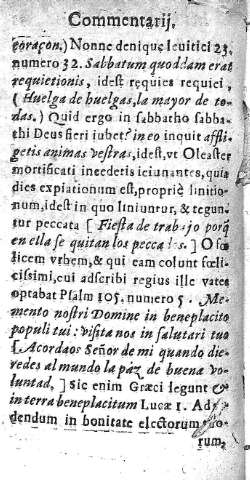 Commentarij.
coraçon.) Nonne denique leuitici 23.
numero 32. Sabbatum quoddam erat
requietionis, idest requies requiei,
( Huelga de huelgas, la mayor de to-
das. ) Quid ergo in sabbatho sabba-
thi Deus fieri iubet? in eo inquit affli-
getis animas vestras, idest, vt Oleaster
mortificati incedetis ieiunantes, quia
dies expiationum est, propriè linitio-
num, idest in quo liniuntur, & tegun-
tur peccata [ Fiesta de trabajo porq̃
en ella se quitan los pecca os. ] O fœ
licem vrbem, & qui eam colunt fœli-
cissimi, cui adscribi regius ille vates
optabat Psalm 105. numero 5. Me-
mento nostri Domine in beneplacito
populi tui: visita nos in salutari tuo
[ Acordaos Señor de mi quando die-
redes al mundo la paz de buena vo-
luntad, ] sic enim Græci legunt &
in terra beneplacitum Lucæ 1. Ad
dendum in bonitate electorum
rum,